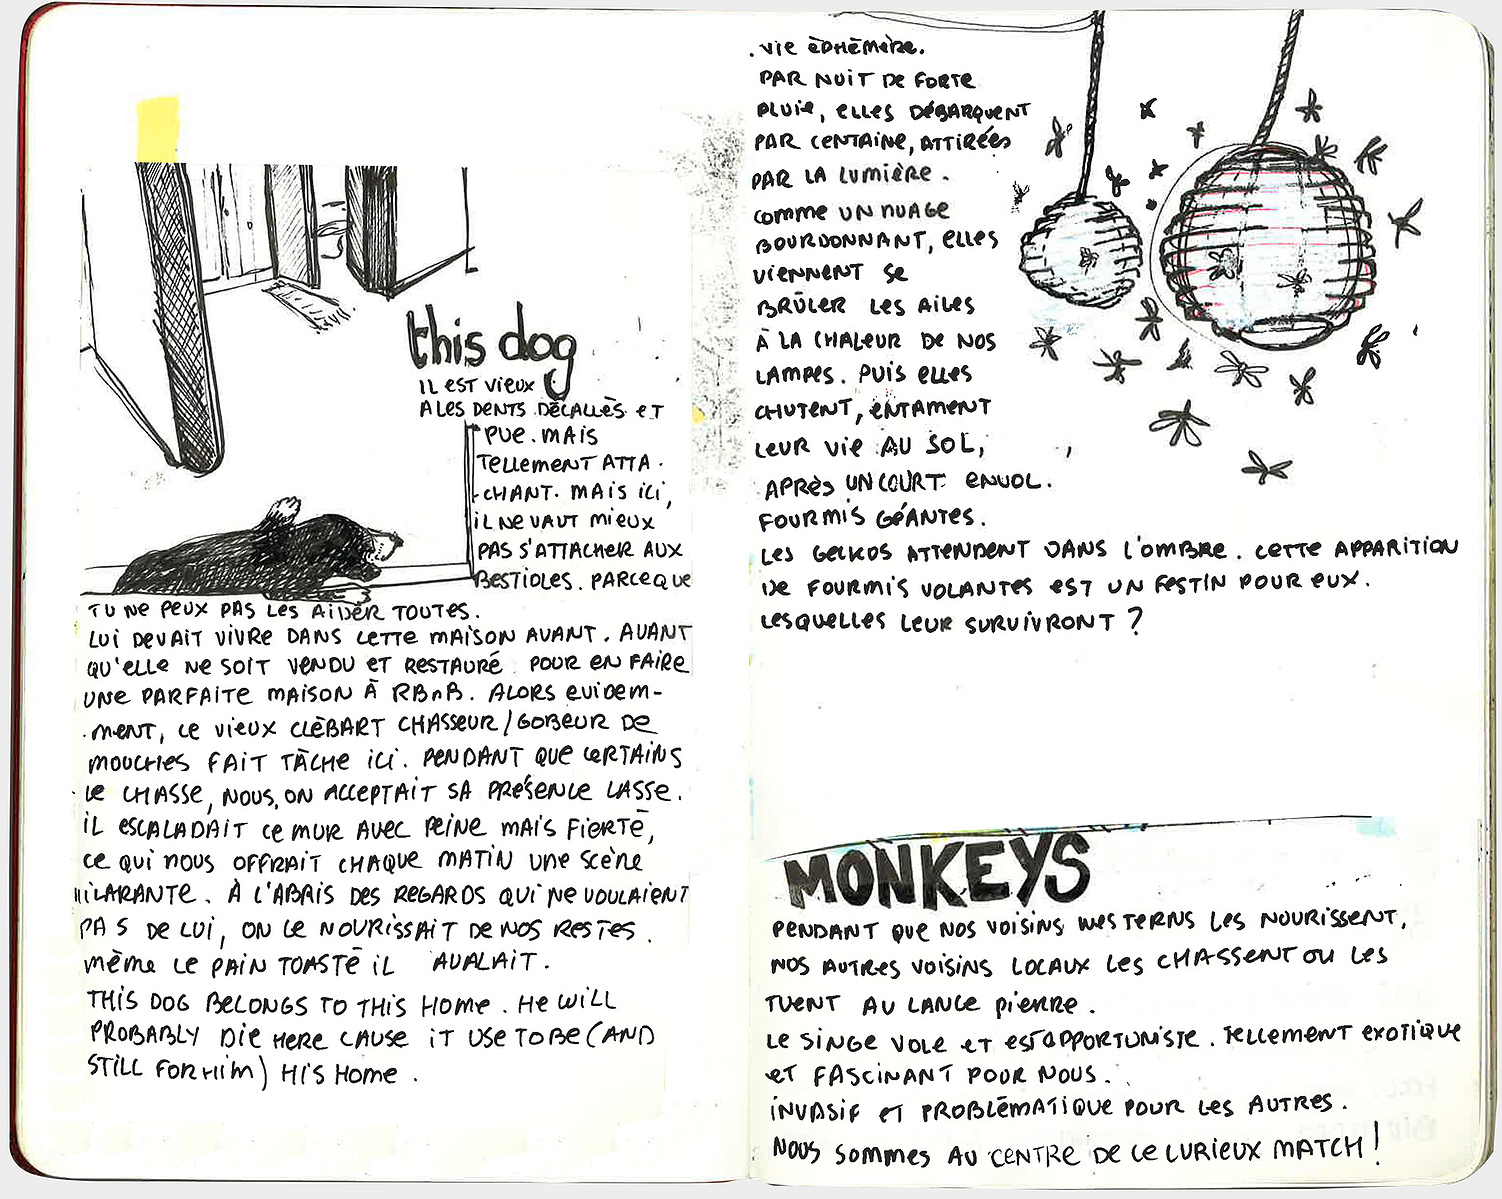 this dog
IL EST VIEUX
A LES DENTS DÉCALLÈS ET
PUE. MAIS
TELLEMENT ATTA.
-CHANT. MAIS ICI,
IL NE VAUT MIEUX
PAS S'ATTACHER AUX
BESTIOLES. PARCEQUE
TU NE PEUX PAS LES AIDER TOUTES.
LUI DEVAIT VIVRE DANS CETTE MAISON AVANT. AVANT
QU'ELLE NE SOIT VENDU ET RESTAURÉ POUR EN FAIRE
UNE PARFAITE MAISON À RBnB. ALORS EVIDEM-
.MENT, CE VIEUX CLÉBART CHASSEUR/GOBEUR DE
MOUCHES FAIT TÂCHE ICI. PENDANT QUE CERTAINS
LE CHASSE, NOUS, ON ACCEPTAIT SA PRÉSENCE LASSE.
IL ESCALADAIT CE MUR AVEC PEINE MAIS FIERTÉ,
CE QUI NOUS OFFRAIT CHAQUE MATIN UNE SCÈNE
HILARANTE. À L'ABAIS DES REGARDS QUI NE VOULAIENT
PAS DE LUI, ON LE NOURISSAIT DE NOS RESTES.
MÊME LE PAIN TOASTÉ IL AVALAIT.
THIS DOG BELONGS TO THIS HOME. HE WILL
PROBABLY DIE HERE CAUSE IT USE TO BE (AND
STILL FOR HIM) HIS HOME.
.VIE ÉPHÉMÈRE.
PAR NUIT DE FORTE
PLUIE, ELLES DÉBARQUENT
PAR CENTAINE, ATTIRÉES
PAR LA LUMIÈRE.
COMME UN NUAGE
BOURDONNANT, ELLES
VIENNENT SE
BRÛLER LES AILES
À LA CHALEUR DE NOS
LAMPES. PUIS ELLES
CHUTENT, ENTAMENT
LEUR VIE AU SOL,
APRÈS UN COURT ENVOL.
FOURMIS GÉANTES.
LES GECKOS ATTENDENT DANS L'OMBRE. CETTE APPARITION
DE FOURMIS VOLANTES EST UN FESTIN POUR EUX.
LESQUELLES LEUR SURVIVRONT ?
MONKEYS
PENDANT QUE NOS VOISINS WESTERNS LES NOURISSENT,
NOS AUTRES VOISINS LOCAUX LES CHASSENT OU LES
TUENT AU LANCE PIERRE.
LE SINGE VOLE ET EST OPPORTUNISTE. TELLEMENT EXOTIQUE
ET FASCINANT POUR NOUS.
INVASIF ET PROBLÉMATIQUE POUR LES AUTRES.
NOUS SOMMES AU CENTRE DE CE CURIEUX MATCH !